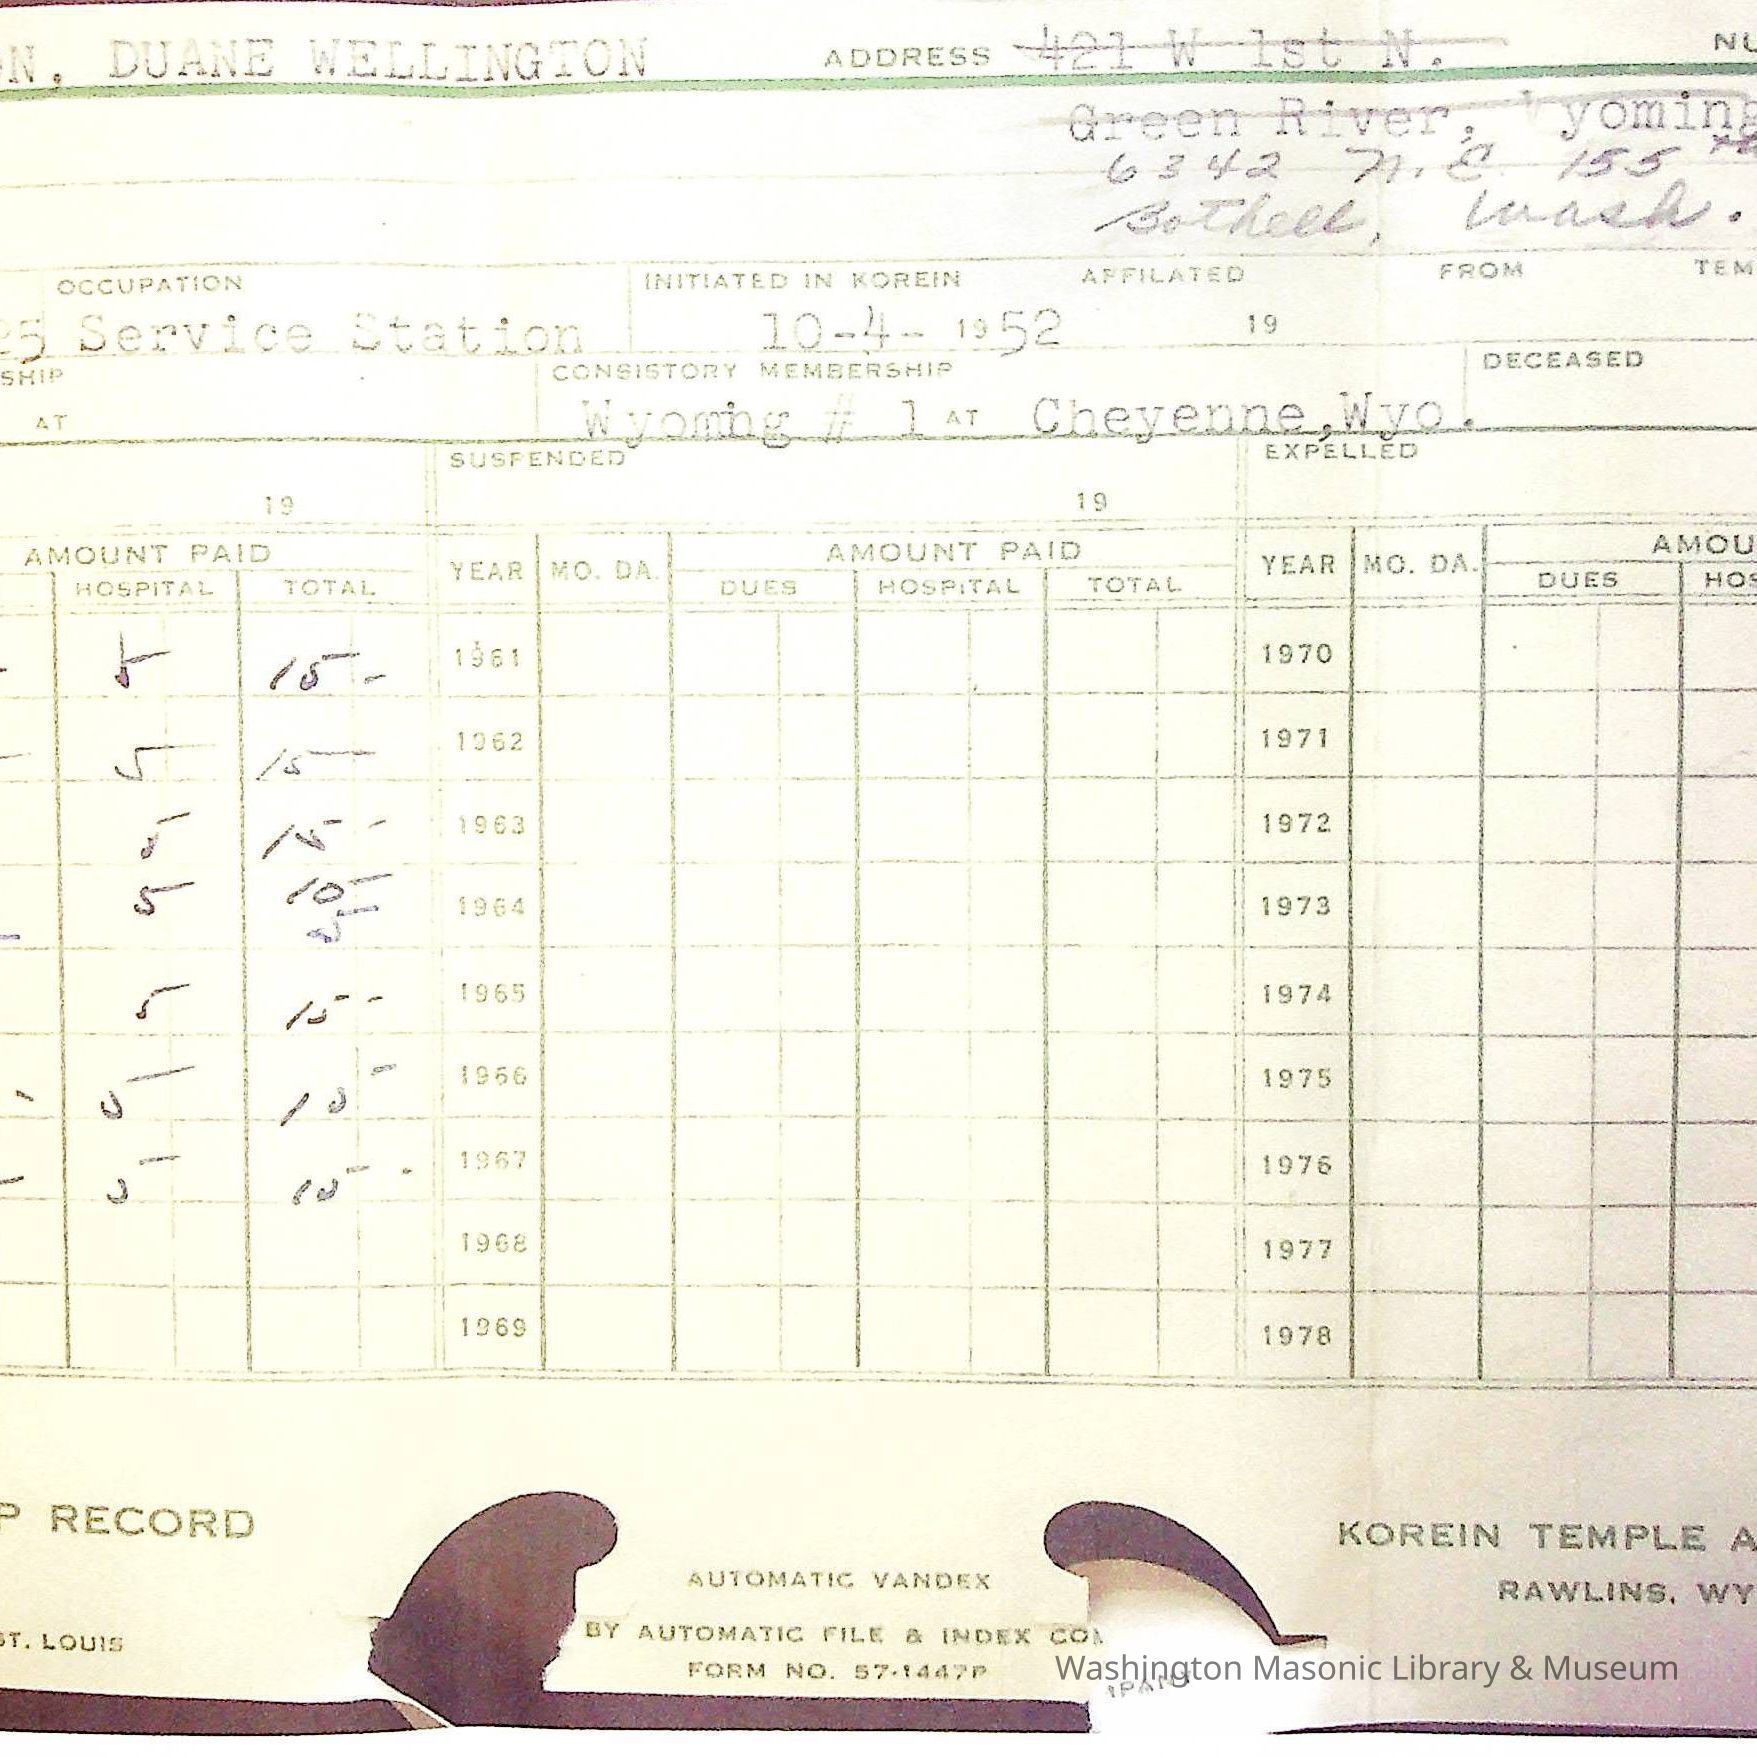 N, DUANE WELLINGTON ADDRESS 421 W 1st N. NU
Green River, Wyoming
6342 N.E. 155
Bothell, Wash.
OCCUPATION INITIATED IN KOREIN AFFILATED FROM TEM
25 Service Station 10-4- 1952 19
SHIP CONSISTORY MEMBERSHIP DECEASED
AT Wyoming # 1 AT Cheyenne,Wyo.
SUSPENDED EXPELLED
19 19
AMOUNT PAID YEAR MO. DA. AMOUNT PAID YEAR MO. DA. AMOU
HOSPITAL TOTAL DUES HOSPITAL TOTAL DUES HOS
5 15- 1961 1970
5 15- 1962 1971
5 15- 1963 1972
5 10- 1964 1973
5-
5 15- 1965 1974
5 15- 1966 1975
5 15- 1967 1976
1968 1977
1969 1978
P RECORD KOREIN TEMPLE A
AUTOMATIC VANDEX RAWLINS, WY
ST. LOUIS BY AUTOMATIC FILE & INDEX COM
FORM NO. 57-1447P IPANY
Washington Masonic Library & Museum